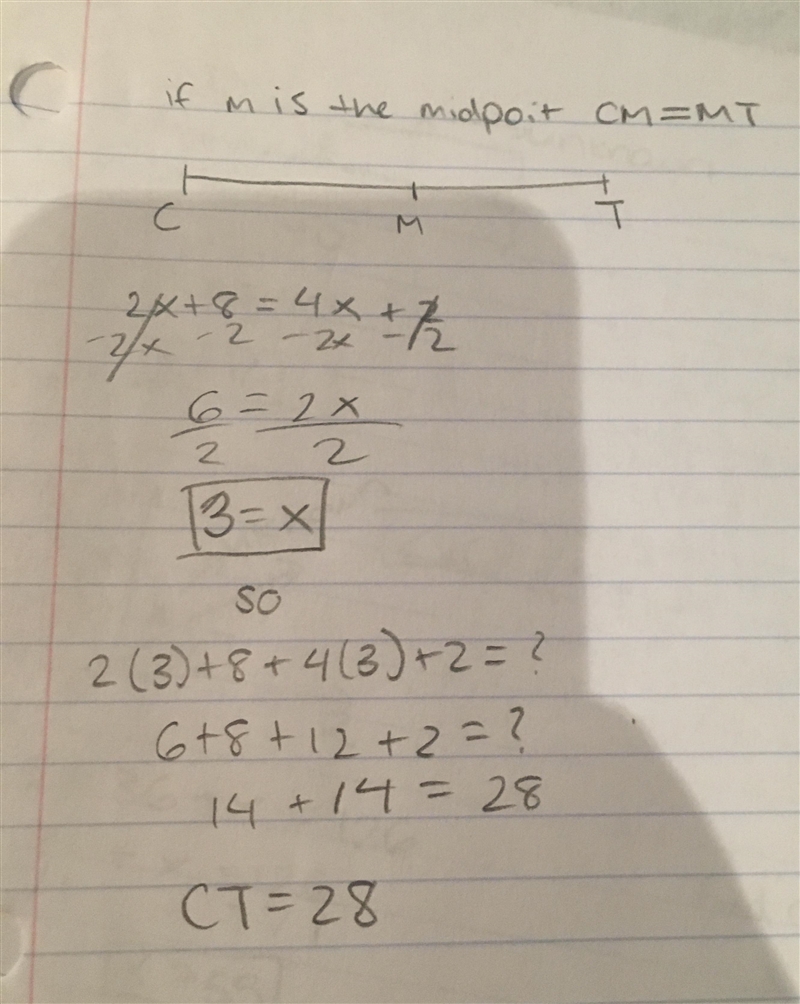 if M is the midpoit CM=MT
C M T
2x+8=4x+2
-2x -2 -2x -2
6 = 2x
2 2
3=x
so
2(3)+8+4(3)+2=?
6+8+12+2=?
14+14=28
CT=28